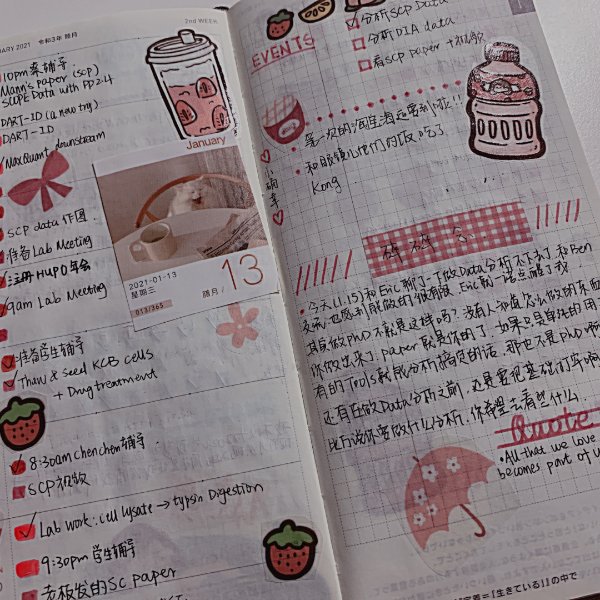 UARY 2021 令和3年 睦月
2nd WEEK
10pm 桑辅导
Mann's paper (scp)
SCOPE Data with PD2.4
DART-ID (a new try)
DART-ID
MaxQuant downstream
SCP data 作图
准备 Lab Meeting
注册 HUPO 年会
9am Lab Meeting
准备学生辅导
Thaw & Seed KCB cells
+ Drug treatment
8:30am chenchen 辅导
SCP 视频
Lab work: cell lysate → typsin Digestion
9:30pm 学生辅导
老板发的 SC paper
January
2021-01-13
星期三
013/365
腊月/
13
EVENTS
分析 SCP Data
分析 DIA data
看 SCP paper + 视频
第一次的淘宝海运要到啦!!
和眼镜儿他们约饭吃了
Kong
小确幸
碎碎念
今天(1.15)和 Eric 聊了一下做 Data 分析不下去了和 Ben
其实做 PhD 不就是这样吗?没有人知道怎么做的东西
你做出来了, paper 就是你的了. 如果只是单纯的用
有的 Tools 就能分析搞定的话, 那也不是 PhD 嘛
还有在做 Data 分析之前, 还是要把基础打牢啊
比方说你要做什么分析, 你希望去看些什么.
Quote
All that we love
becomes part of u
定義=「生きている」の中で